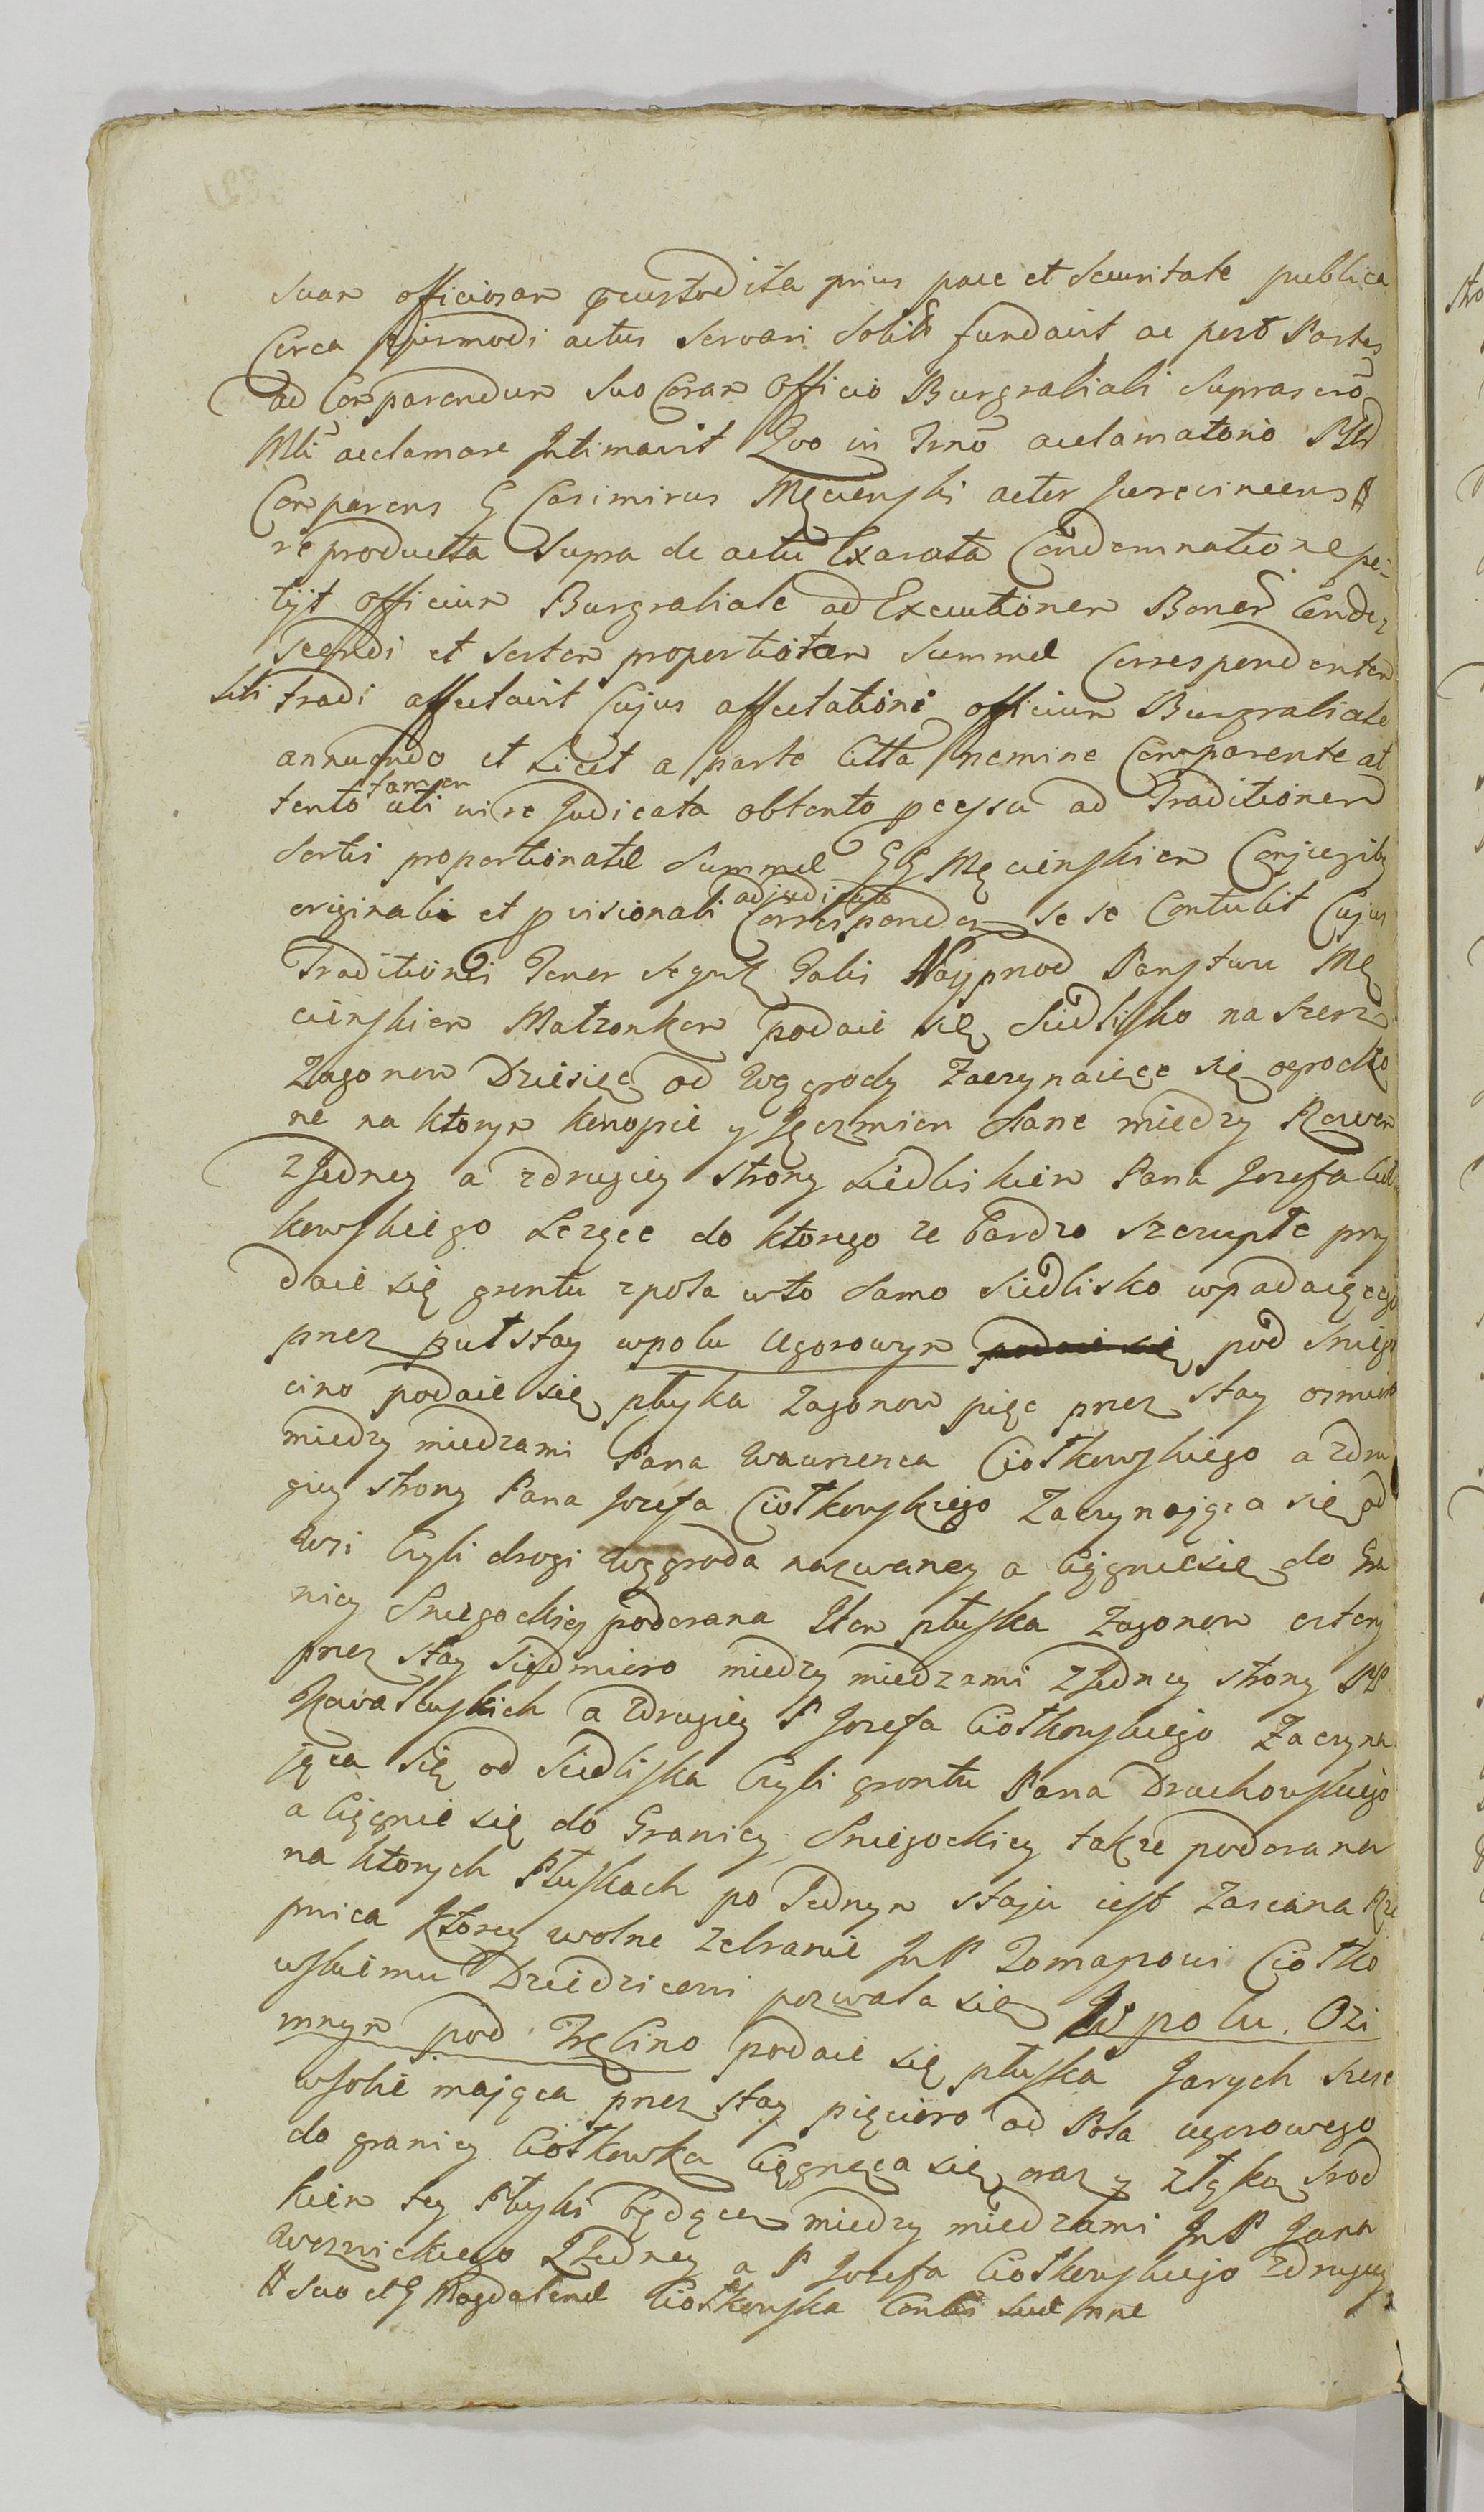 suam officiosam custodita prius pace et securitate publica
Circa ejusmodi actus servari solita fundavit ac per Partes
ad Comparendum suo Coram Officio Burgrabiali suprascro
Mli acclamare Intimavit Quo in Trno acclamatorio
Comparens G Casimirus Męcienski actor jurevincens #
reproducta Supra de actu Exarata Condemnatione pe-
tijt officium Burgrabiale ad Executionem Bonor Conde
scendi et sortem proportiotam Summæ Correspondentem
sibi tradi affectavit Cujus affectationi officium Burgrabiale
annuendo et Licet a parte Citta nemine Comparente at
tento tamen uti in re Judicata obtento pcessu ad Traditionem
Sortis proportionatæ Summæ GG Męcienskim Conjugibg
originali et pvisionali adjudicato Corresponden se se Contulit Cujus
Traditionis Tenor sequr Talis Nayprzod Panstwu Mę
cienskim Małzonkom podaie się Siedlisko na szerz
Zagonow Dziesięć od Wygrody Zaczynaiące się ogrodzo
ne na ktorym konopie y Jęczmien Siane miedzy Rowem
z Jedney a zdrugiey strony siedliskiem Pana Jozefa Cioł
kowskiego Lezące do ktorego ze bardzo szczupłe przy
daie się gruntu z pola wto samo siedlisko wpadaiącego
przez puł stay wpolu Ugorowym podaie się pod Snieg
cino podaie się płuska Zagonow pięć przez stay osmioro
miedzy miedzami Pana Wawrzenca Ciołkowskiego a zdru
giey strony Pana Jozefa Ciołkowskiego Zaczynająca się od
Wsi Czyli drogi Wygroda nazwaney a Ciągnie się do Gra
nicy Sniegockiey podorana Item płuska Zagonow cztery
przez stay siedmioro miedzy miedzami z Jedney strony PP
Rawałuskich a Zdrugiey P Jozefa Ciołkowskiego Zaczyna
jąca się od Siedliska Czyli gruntu Pana Druchowskiego
a Ciągnie się do Granicy Sniegockiey takze podorana
na ktorych Płuskach po Jednym staju iest Zasiana Rze
pnica Ktorey wolne Zebranie JmP Tomaszowi Ciołko
wskiemu Dziedzicowi pozwala się W polu Ozi
mnym pod Zręcino podaie się płuska Jarych szesc
wsobie mająca przez stay pięcioro od Pola ugorowego
do granicy Ciołkowka Ciągnąca się oraz y złąką srod
kiem tey Płuski będącą miedzy miedzami JmP Jana
Woznickiego z Jedney a P Jozefa Ciołkowskiego zdrugiey
# suo et G Magdalenæ Ciołkowska Contis suæ nne